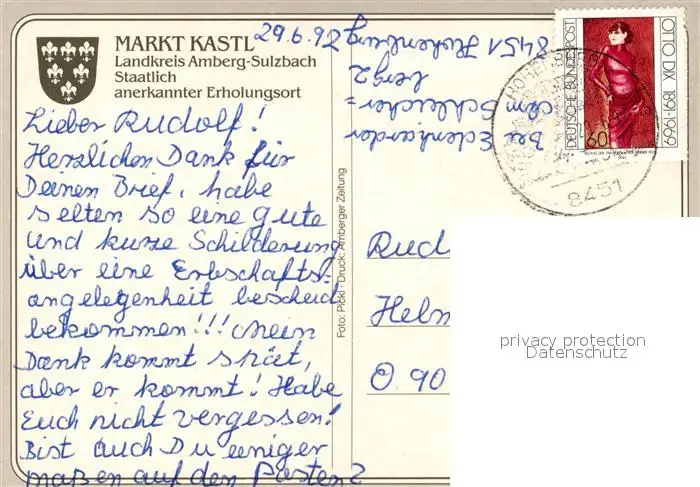 MARKT KASTL
Landkreis Amberg-Sulzbach
Staatlich
anerkannter Erholungsort
29.6.92
Lieber Rudolf!
Herzlichen Dank für
Deinen Brief, habe
selten so eine gute
und kurze Schilderung
über eine Erbschafts-
angelegenheit bescheid
bekommen!!! Mein
Dank kommt spät,
aber er kommt! Habe
Euch nicht vergessen!
Bist auch Du einiger
maßen auf den Posten?
bei
am Schleicher=
berg 2
8451
Foto: Pickl · Druck: Amberger Zeitung
DEUTSCHE BUNDESPOST
60
OTTO DIX 1891-1969
8451
Rud
Helm
O. 90
privacy protection
Datenschutz